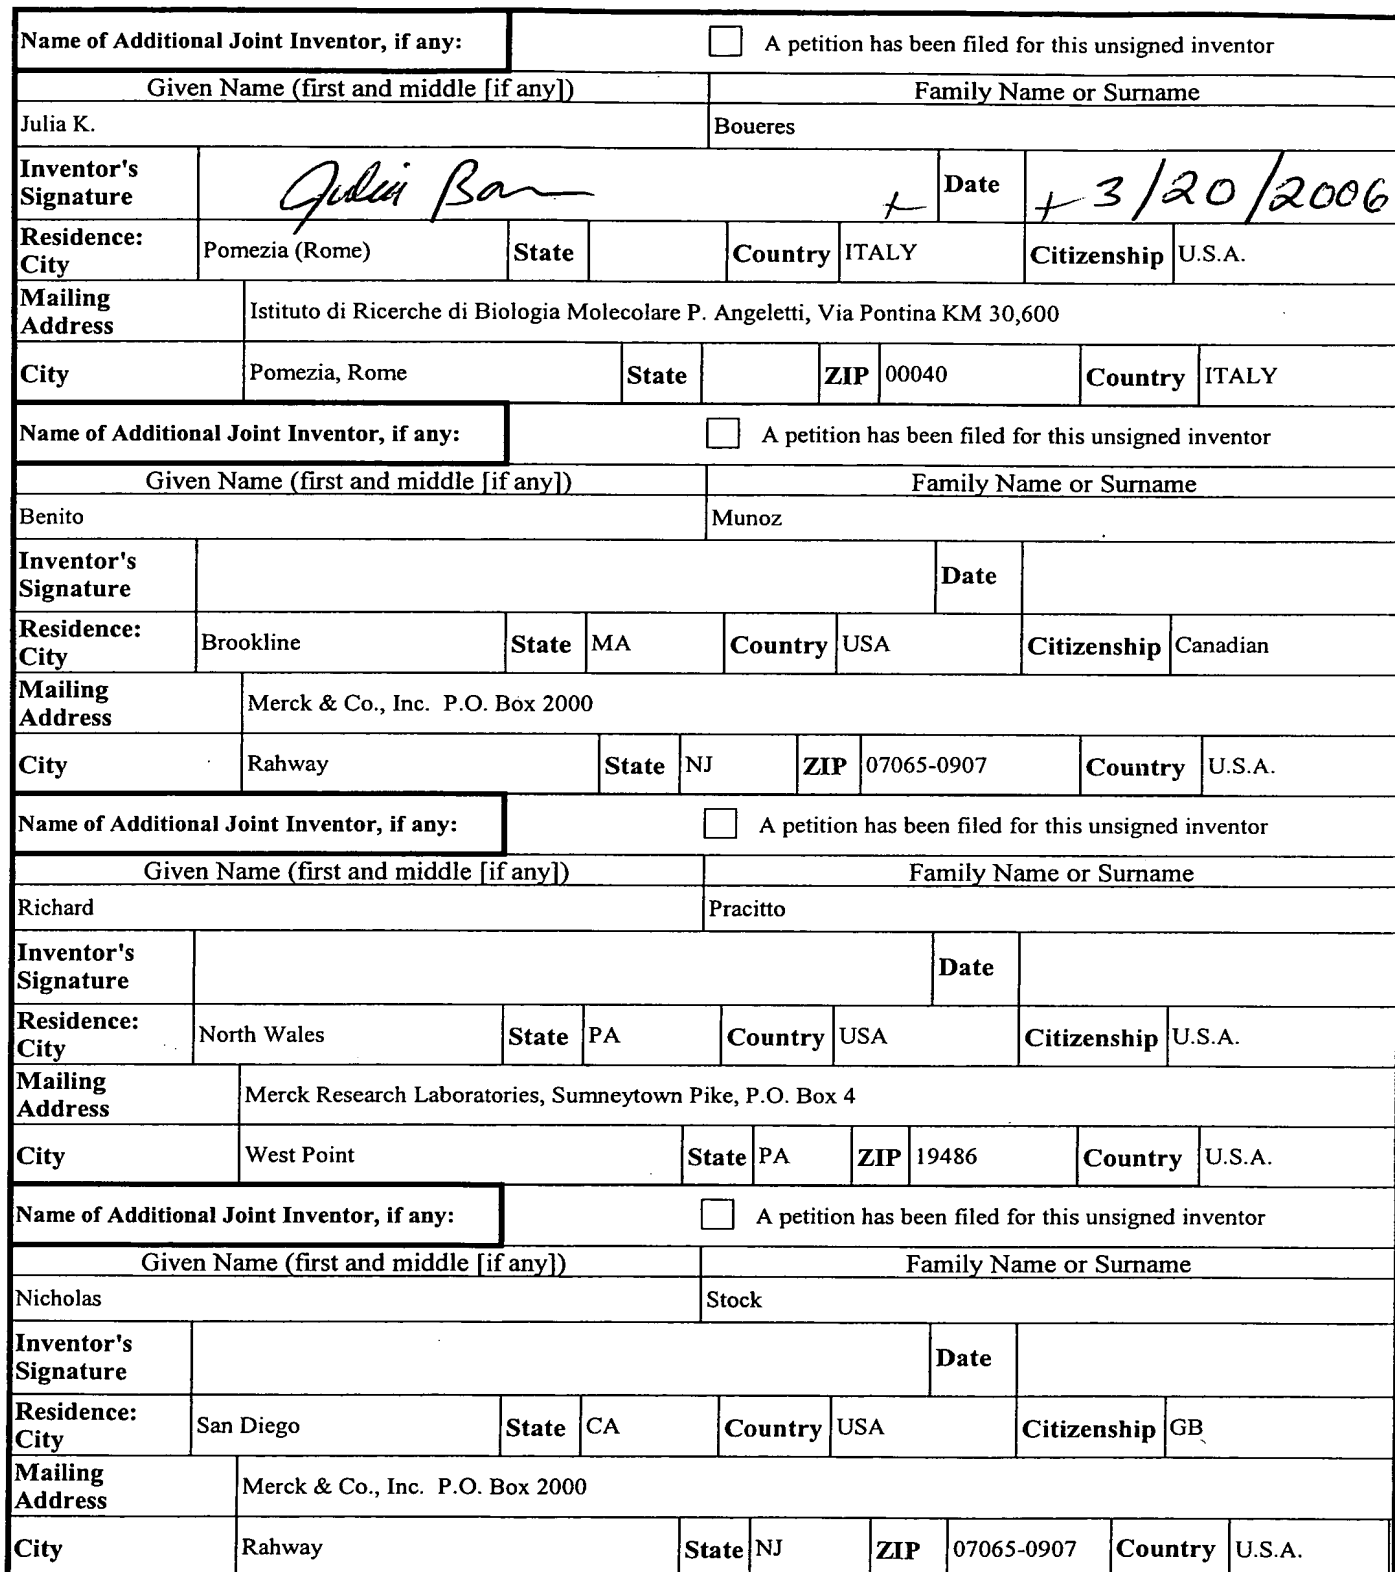 Name of Additional Joint Inventor, if any: A petition has been filed for this unsigned inventor
Given Name (first and middle [if any]) Family Name or Surname
Julia K. Boueres
Inventor's Signature Julia Date + 3/20/2006
Residence: City Pomezia (Rome) State Country ITALY Citizenship U.S.A.
Mailing Address Istituto di Ricerche di Biologia Molecolare P. Angeletti, Via Pontina KM 30,600
City Pomezia, Rome State ZIP 00040 Country ITALY
Name of Additional Joint Inventor, if any: A petition has been filed for this unsigned inventor
Given Name (first and middle [if any]) Family Name or Surname
Benito Munoz
Inventor's Signature Date
Residence: City Brookline State MA Country USA Citizenship Canadian
Mailing Address Merck & Co., Inc. P.O. Box 2000
City Rahway State NJ ZIP 07065-0907 Country U.S.A.
Name of Additional Joint Inventor, if any: A petition has been filed for this unsigned inventor
Given Name (first and middle [if any]) Family Name or Surname
Richard Pracitto
Inventor's Signature Date
Residence: City North Wales State PA Country USA Citizenship U.S.A.
Mailing Address Merck Research Laboratories, Sumneytown Pike, P.O. Box 4
City West Point State PA ZIP 19486 Country U.S.A.
Name of Additional Joint Inventor, if any: A petition has been filed for this unsigned inventor
Given Name (first and middle [if any]) Family Name or Surname
Nicholas Stock
Inventor's Signature Date
Residence: City San Diego State CA Country USA Citizenship GB
Mailing Address Merck & Co., Inc. P.O. Box 2000
City Rahway State NJ ZIP 07065-0907 Country U.S.A.